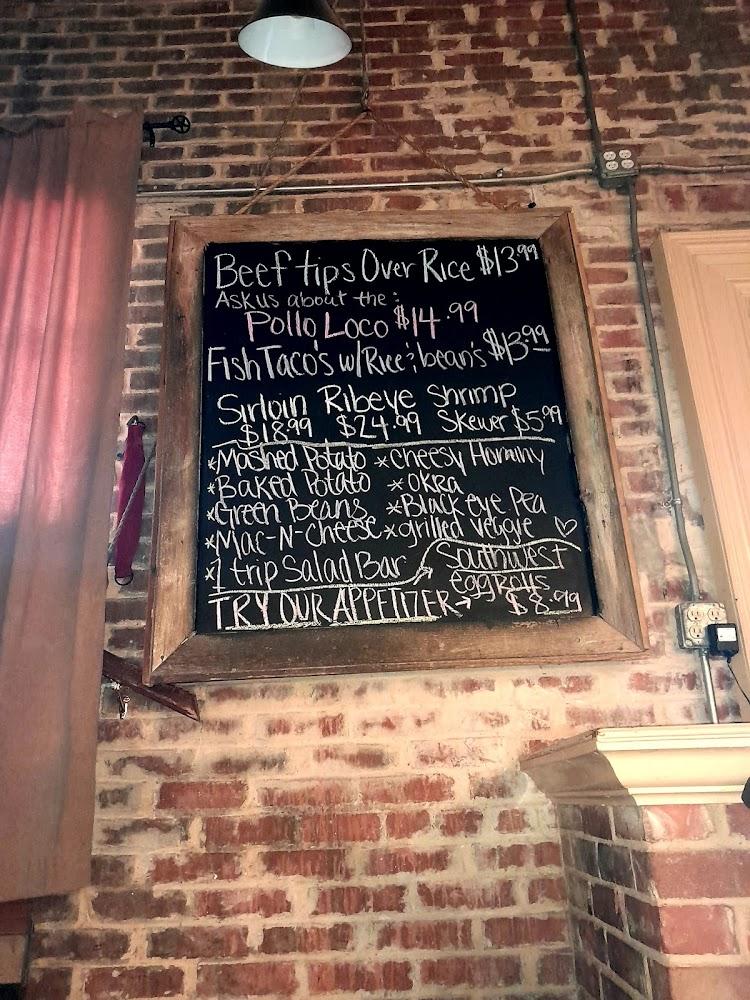 Beef tips Over Rice $13.99
Ask us about the:
Pollo Loco $14.99
Fish Taco's w/Rice & bean's $13.99
Sirloin Ribeye Shrimp
$18.99 $24.99 Skewer $5.99
*Mashed Potato *Cheesy Hominy
*Baked Potato *OKRA
*Green Beans *Black eye Pea
*Mac-N-Cheese *grilled veggie ♡
*1 trip Salad Bar
TRY OUR APPETIZER→ Southwest
eggrolls
$8.99